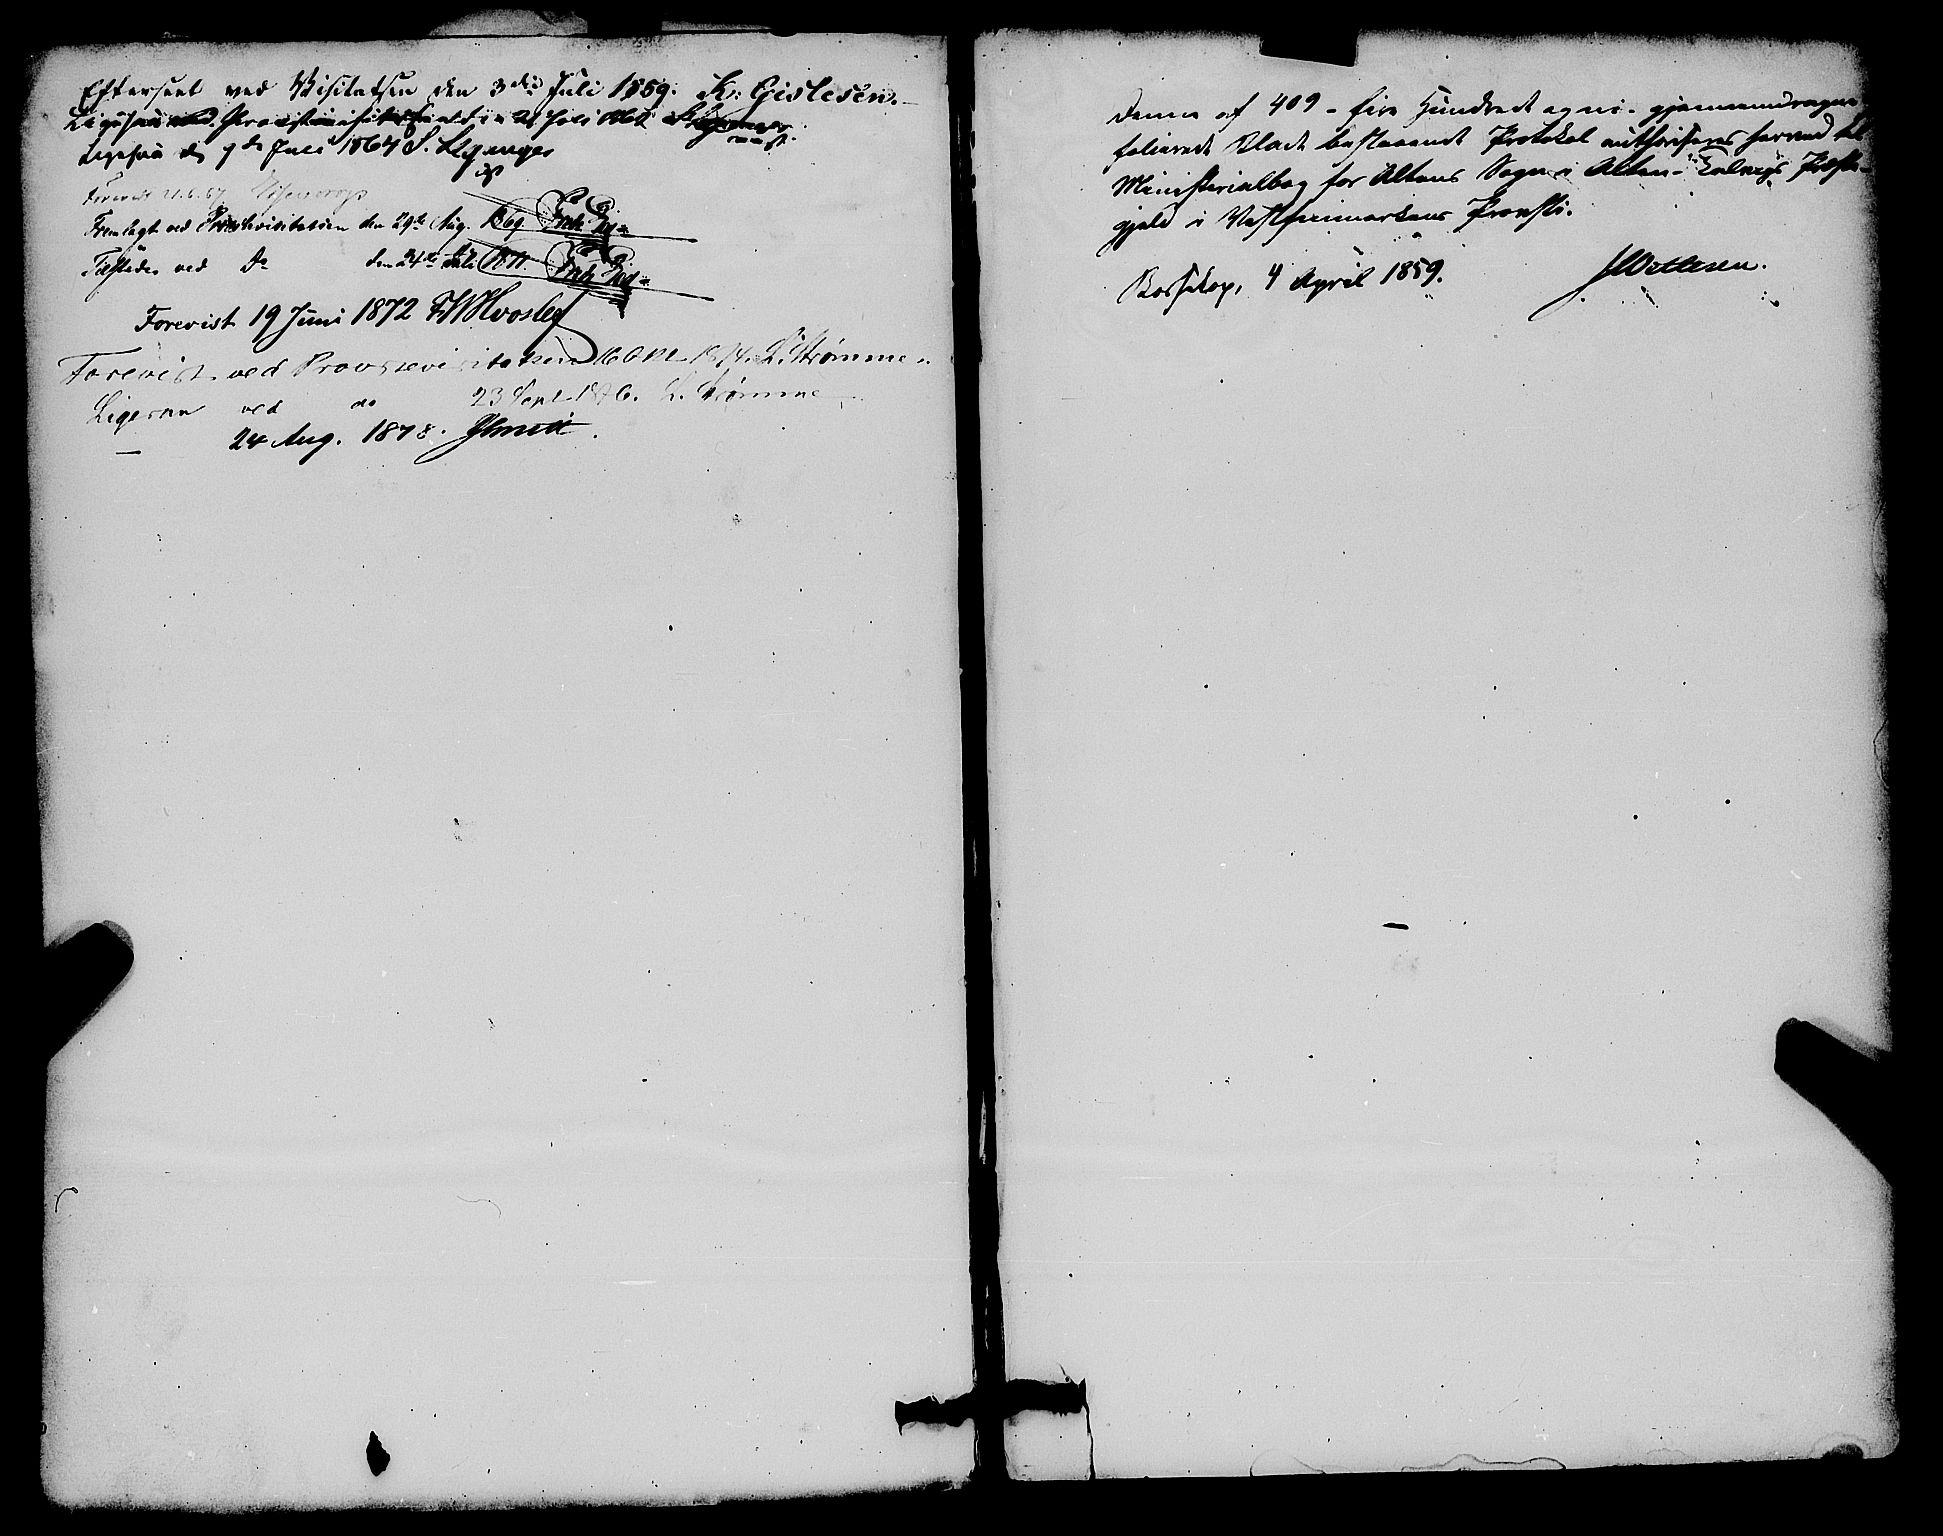 Efterseet ved Visitatsen den 3die Juli 1859. K. Gislesen.
Ligesaa ved Provstevisitatsen Juli
Ligesaa d. 7de Juli 1864 S.
Forevist
Fremlagt ved Provstevisitatsen den 29de Aug. 1869
Tilstede ved Do den 24de Juli
Forevist 19 Juni 1872 FWHvoslef
Forevist ved Provstevisitatsen 16 Okt 1874. L. Strømme.
Ligesaa ved do 23 Sept 1876. L. Strømme
— 24 Aug. 1878. Smitt.
Denne af 409 - fire Hundrede og ni - gjennemdragne
folierede Blade bestaaende Protokol authoriseres herved til
Ministerialbog for Altens Sogn i Alten-Talvigs Præste-
gjeld i Vestfinmarkens Provsti.
Bossekop, 4 April 1859. JWetlesen.